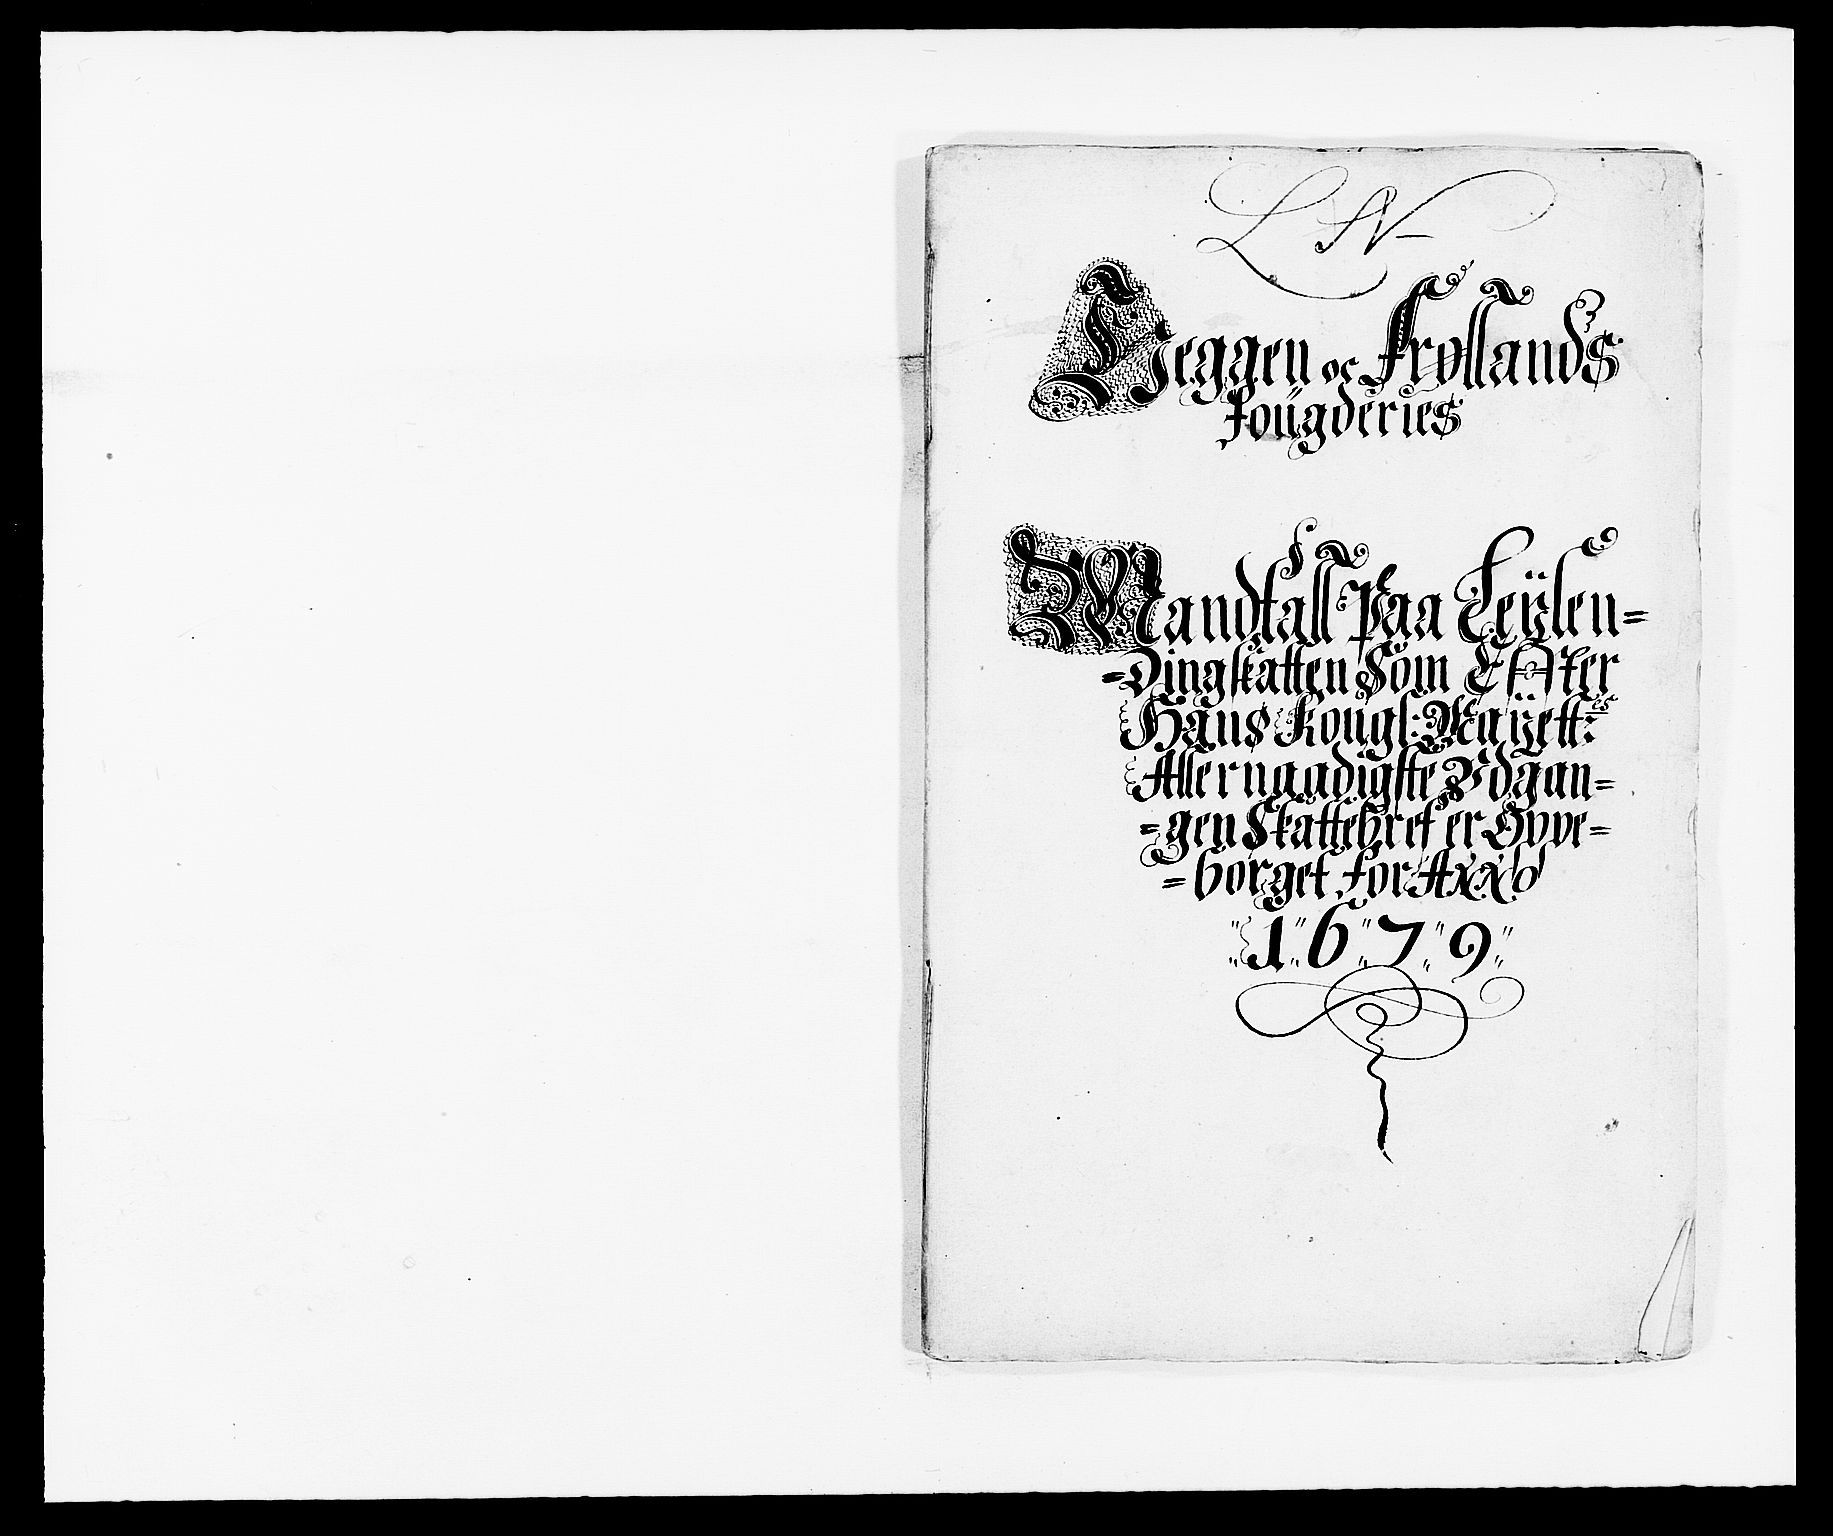 Heggen oc Frøllands
fougderies
Mandtall Paa Leÿlen=
=dingskatten Som Effter
Hans Kongl: Maÿett:es
Allernaadigste Vdgan=
=gen Skattebref er Oppe=
=borget for Axxo
1679